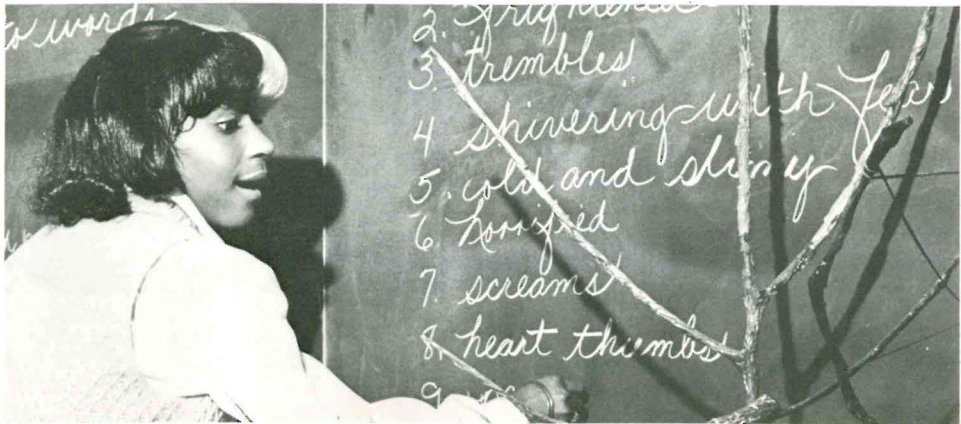 to words
2. frightened
3. trembles
4 shivering with fear
5. cold and slimy
6. horrified
7. screams
8. heart thumbs
9.